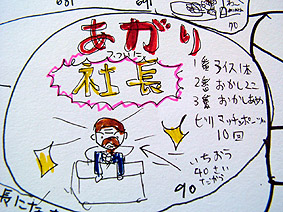 あがり
ついに
社長
1番 アイス1本
2番 おかし2こ
3番 おかしあめ
ビリ マッチョポーズ
10回
いちおう
40さい
だから
90
70
長にな